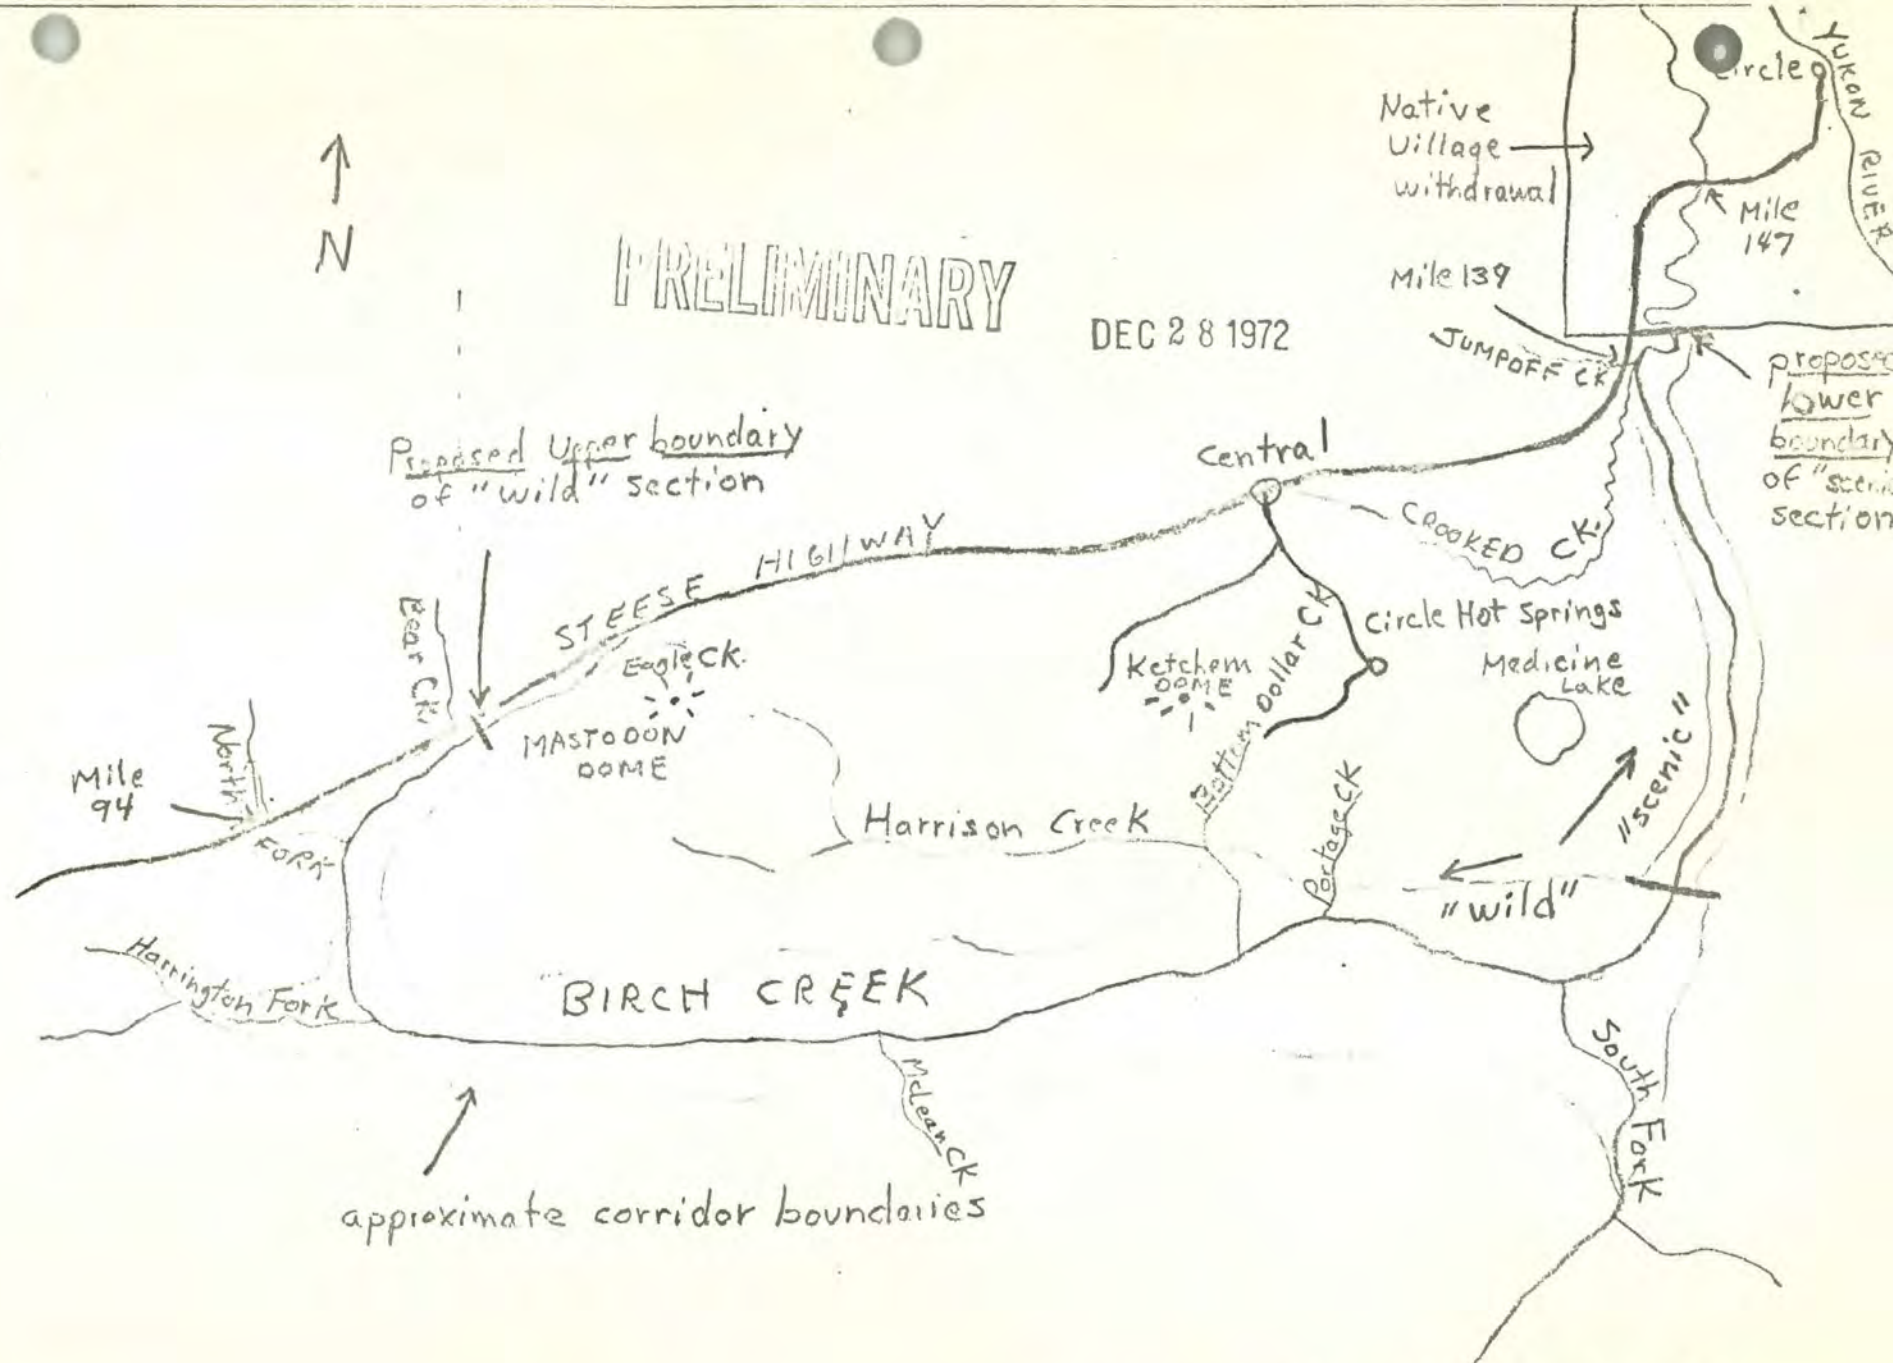 Circle
YUKON RIVER
Native
Village
withdrawal
Mile
147
N
PRELIMINARY
DEC 28 1972
Mile 139
JUMPOFF CK
proposed
lower
boundary
of "scenic
section
Proposed Upper boundary
of "wild" section
Central
CROOKED CK.
STEESE HIGHWAY
Bear CK.
Eagle CK.
MASTODON
DOME
Ketchem
DOME
Bottom Dollar CK
Circle Hot Springs
Medicine
Lake
"scenic"
North
FORK
Mile
94
Harrison Creek
Portage CK
"wild"
Harrington Fork
BIRCH CREEK
McLean CK
South Fork
approximate corridor boundaries